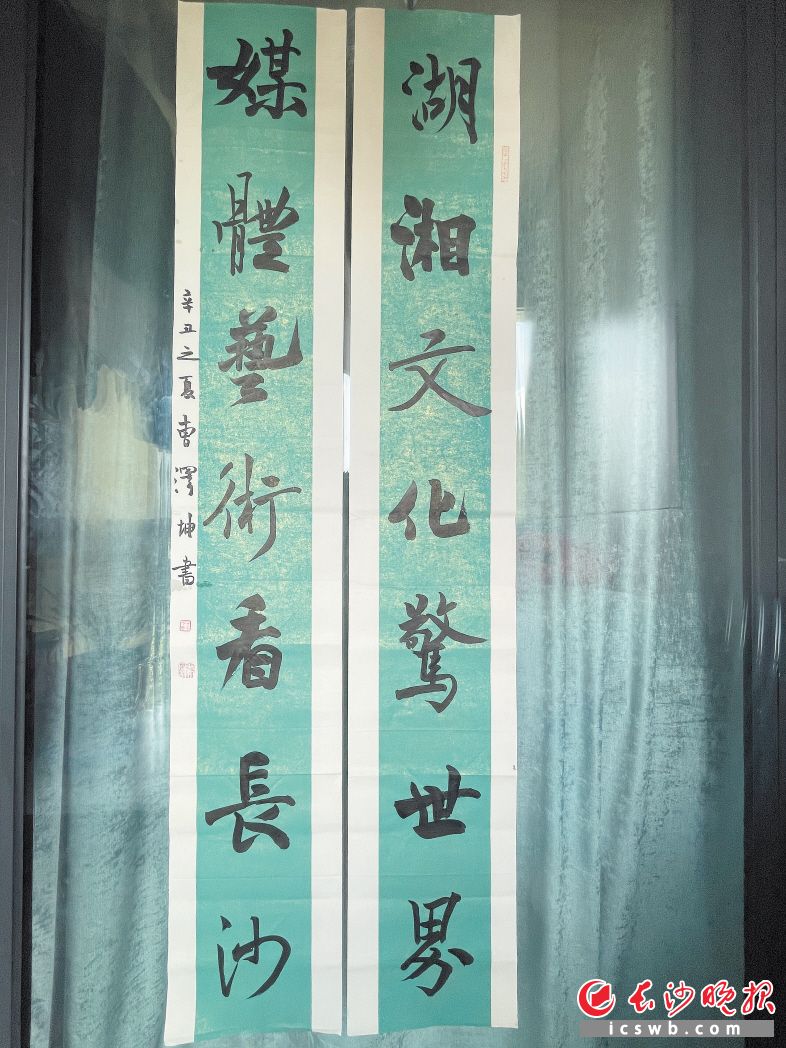 湖湘文化驚世界
媒體藝術看長沙
辛丑之夏曹澤坤書
长沙晚报
icswb.com